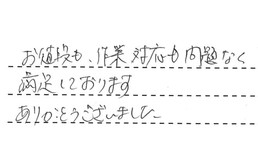 お値段も、作業対応も問題なく
満足しております
ありがとうございました